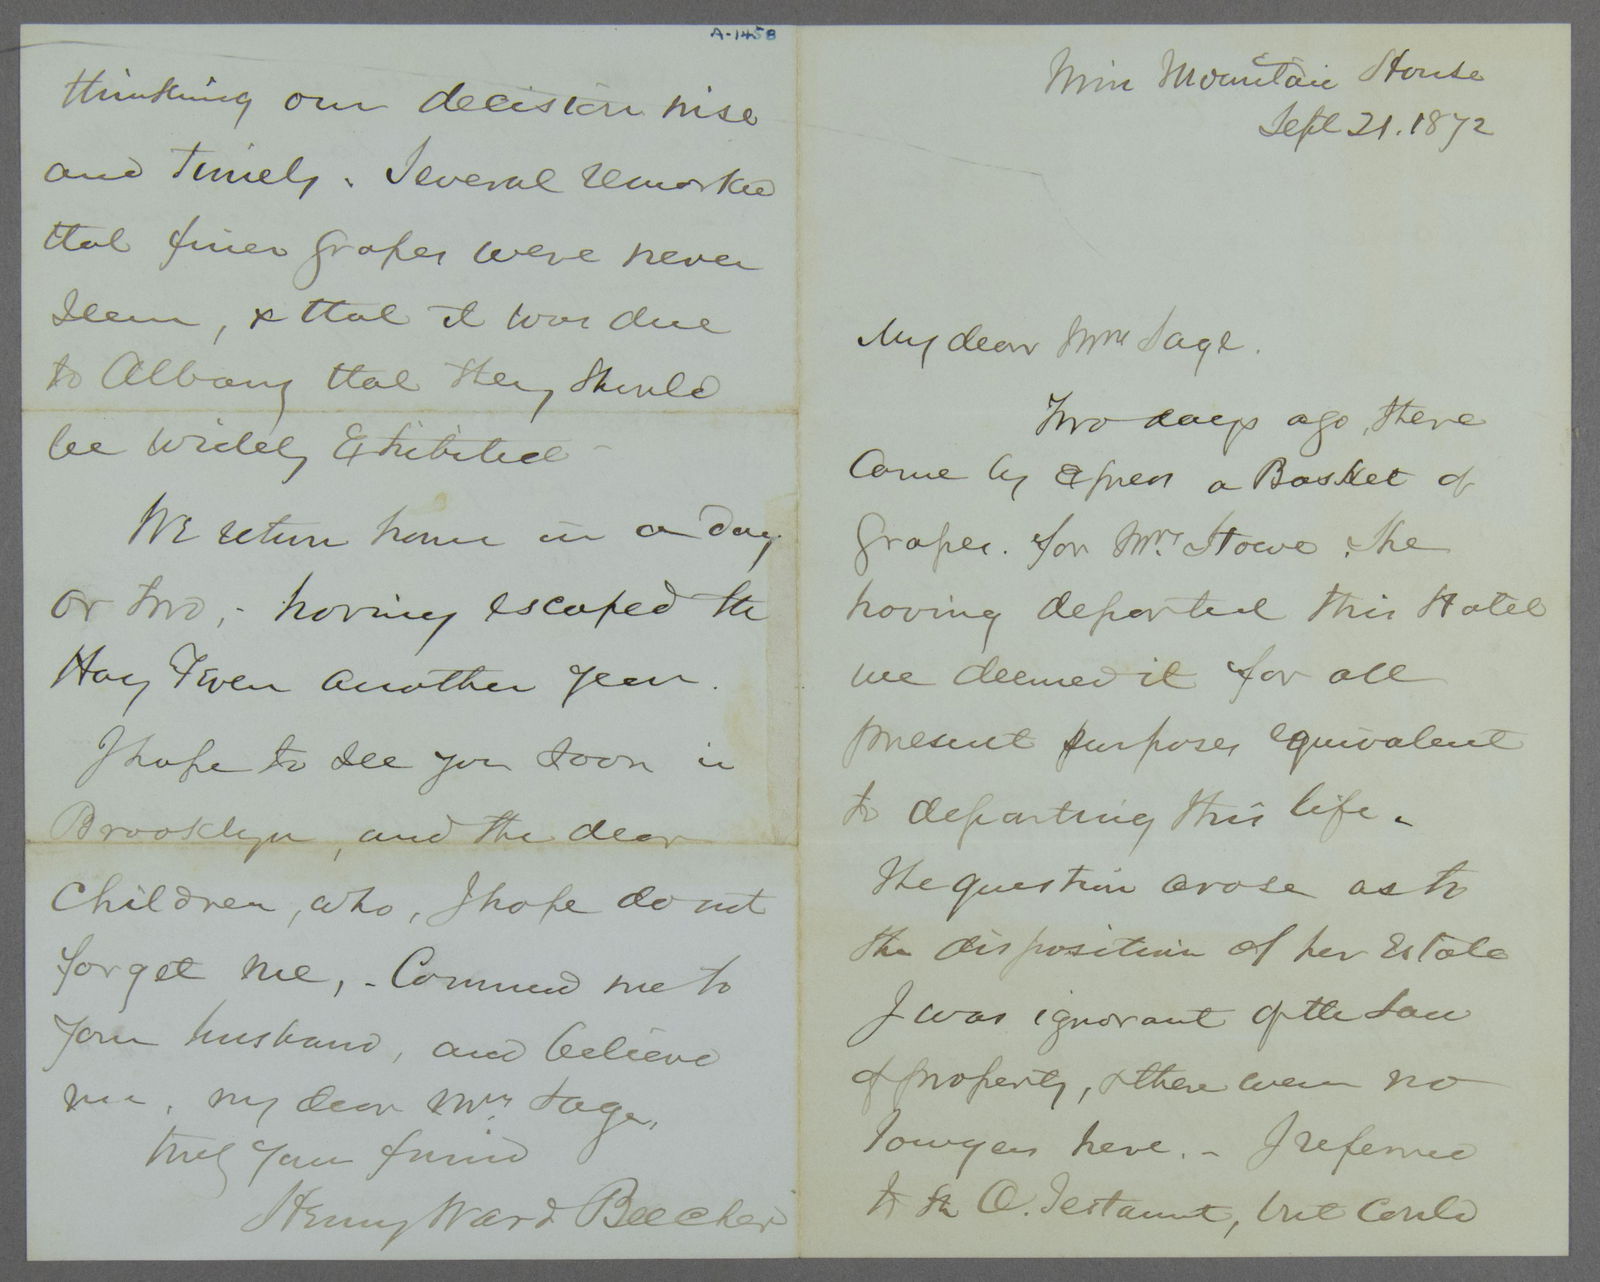 Twin Mountain House
Sept 21. 1872
My dear Mrs Sage.
Two days ago, there
Came by Express a Basket of
Grapes. for Mrs. Stowe. She
having departed this Hotel
we deemed it for all
present purposes equivalent
to departing this life.
The question arose as to
the disposition of her Estate
I was ignorant of the Law
of property, & there were no
Lawyers here. - I referred
to the O. Testament, but could
A-1458
thinking our decision wise
and timely. Several remarked
that finer Grapes were never
seen, & that it was due
to Albany that they should
be widely Exhibited -
We return home in a day
or two, - having escaped the
Hay Fever another year.
I hope to see you soon in
Brooklyn, and the dear
Children, who, I hope do not
forget me, - Commend me to
your husband, and believe
me, my dear Mrs. Sage,
truly your friend
Henry Ward Beecher